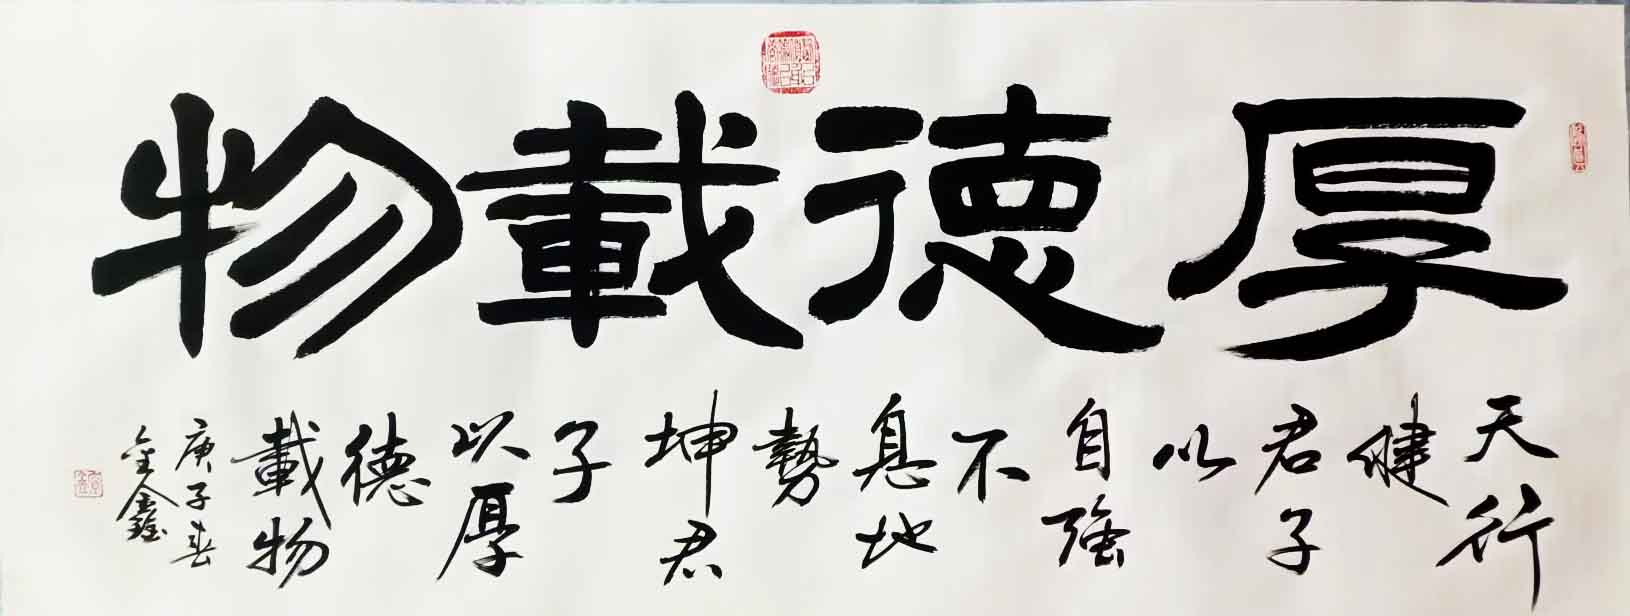 厚德載物
天行
健
君子
以
自強
不
息地
勢
坤君
子
以厚
德
載物
庚子春
金鑫